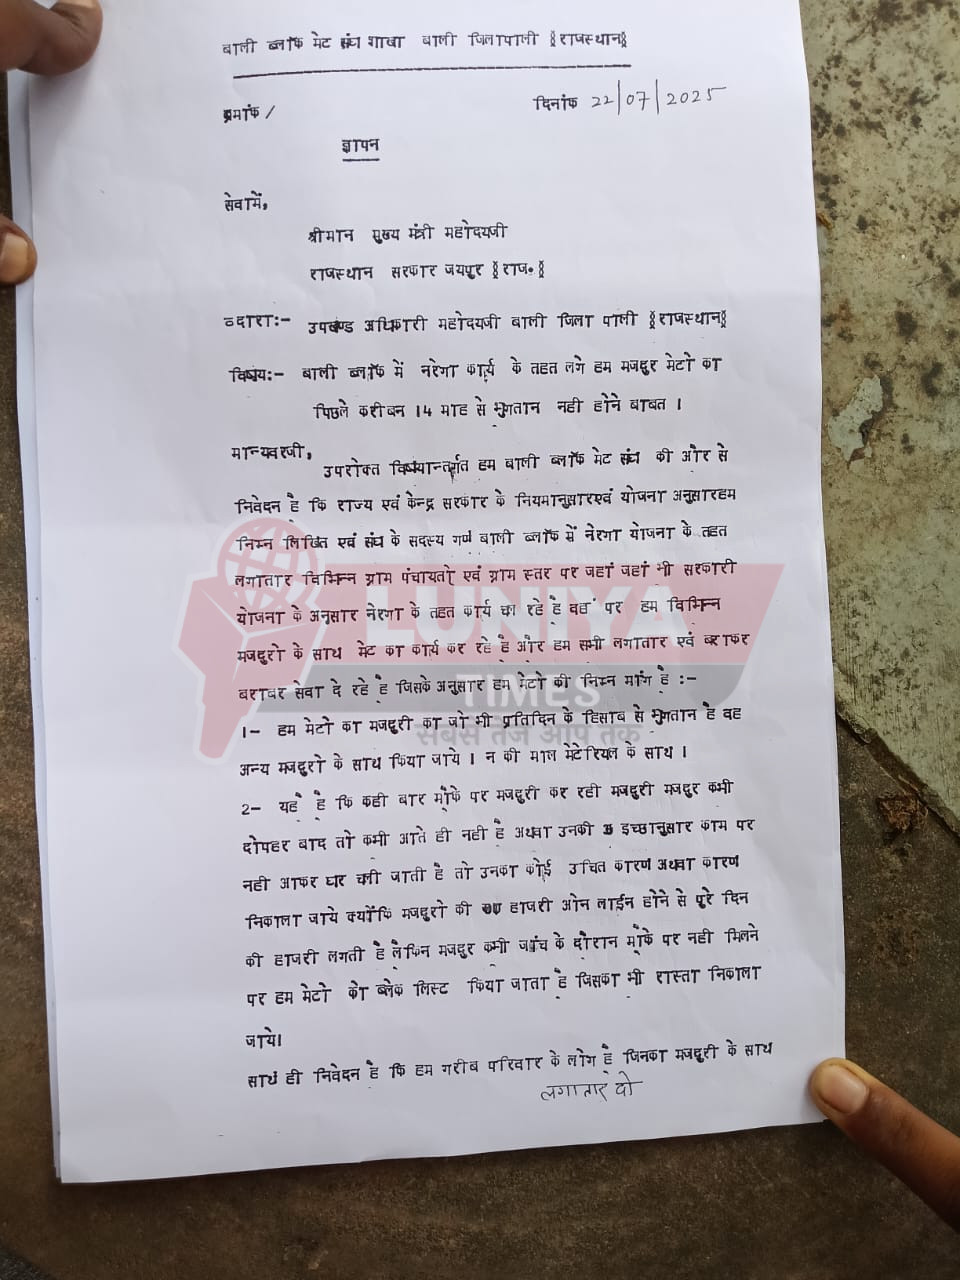 बाली ब्लॉक मेट संघ शाखा बाली जिलापाली ४राजस्थान४
क्रमांक /
दिनांक 22/07/2025
ज्ञापन
सेवामें,
श्रीमान मुख्य मंत्री महोदयजी
राजस्थान सरकार जयपुर ४राज.४
व्दाराः- उपखण्ड अधिकारी महोदयजी बाली जिला पाली ४राजस्थान४
विषयः- बाली ब्लॉक में नरेगा कार्य के तहत लगे हम मजदुर मेटो का
पिछले करीबन 14 माह से भुगतान नही होने बाबत ।
मान्यवरजी,
उपरोक्त विषयान्तर्गत हम बाली ब्लॉक मेट संघ की और से
निवेदन है कि राज्य एवं केन्द्र सरकार के नियमानुसारएवं योजना अनुसारहम
निम्न लिखित एवं संघ के सदस्य गण बाली ब्लॉक में नरेगा योजना के तहत
लगातार विभिन्न ग्राम पंचायतो एवं ग्राम स्तर पर जहां जहां भी सरकारी
योजना के अनुसार नरेगा के तहत कार्य चल रहे है वहां पर हम विभिन्न
मजदुरो के साथ मेट का कार्य कर रहे है और हम सभी लगातार एवं बराकर
बराबर सेवा दे रहे है जिसके अनुसार हम मेटो की निम्न मांग है :-
1- हम मेटो का मजदुरी का जो भी प्रतिदिन के हिसाब से भुगतान है वह
अन्य मजदुरो के साथ किया जाये । न की माल मेटेरियल के साथ ।
2- यहँ है कि कही बार मौके पर मजदुरी कर रही मजदुरी मजदुर कभी
दोपहर बाद तो कभी आते ही नही है अथवा उनकी इच्छानुसार काम पर
नही आकर घर चली जाती है तो उनका कोई उचित कारण अथवा कारण
निकाला जाये क्योंकि मजदुरो की हाजरी ओन लाईन होने से पूरे दिन
की हाजरी लगती है लेकिन मजदुर कभी जांच के दौरान मौके पर नही मिलने
पर हम मेटो को ब्लेक लिस्ट किया जाता है जिसका भी रास्ता निकाला
जाये।
साथ ही निवेदन है कि हम गरीब परिवार के लोग है जिनका मजदुरी के साथ
लगातार दो
LUNIYA
TIMES
सबसे तेज आप तक